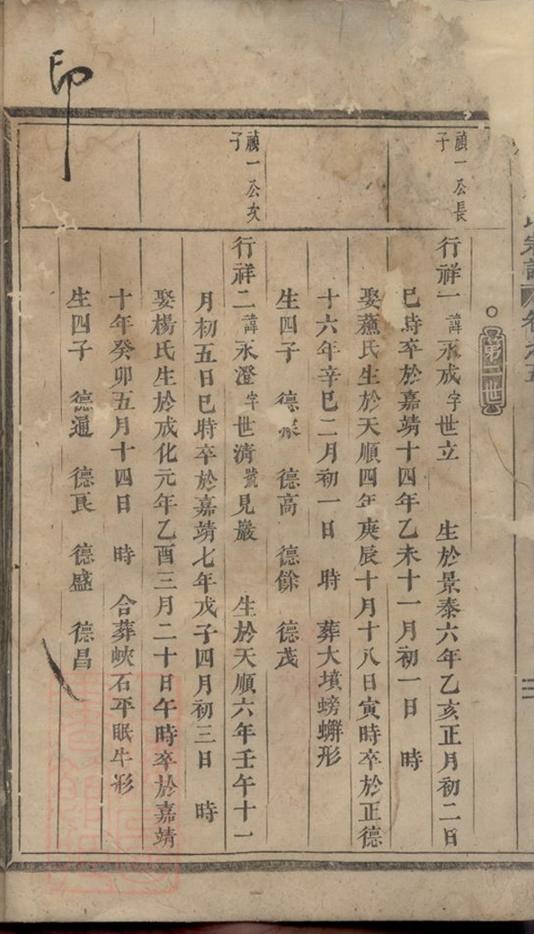 印
氏宗譜
卷之五
第二世
禎一公長子
行祥一諱永成字世立 生於景泰六年乙亥正月初二日
巳時卒於嘉靖十四年乙未十一月初一日 時
娶蕭氏生於天順四年庚辰十月十八日寅時卒於正德
十六年辛巳二月初一日 時 葬大墳螃蠏形
生四子 德 德高 德餘 德茂
禎一公次子
行祥二諱永澄字世濟號見嚴 生於天順六年壬午十一
月初五日巳時卒於嘉靖七年戊子四月初三日 時
娶楊氏生於成化元年乙酉三月二十日午時卒於嘉靖
十年癸卯五月十四日 時 合葬峽石平眠牛形
生四子 德通 德民 德盛 德昌